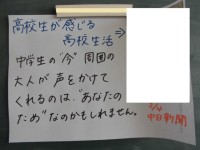 高校生が感じる
高校生活 ⇒
中学生の“今” 周囲の
大人が声をかけて
くれるのは、“あなたの
ため”なのかもしれません。
中日新聞